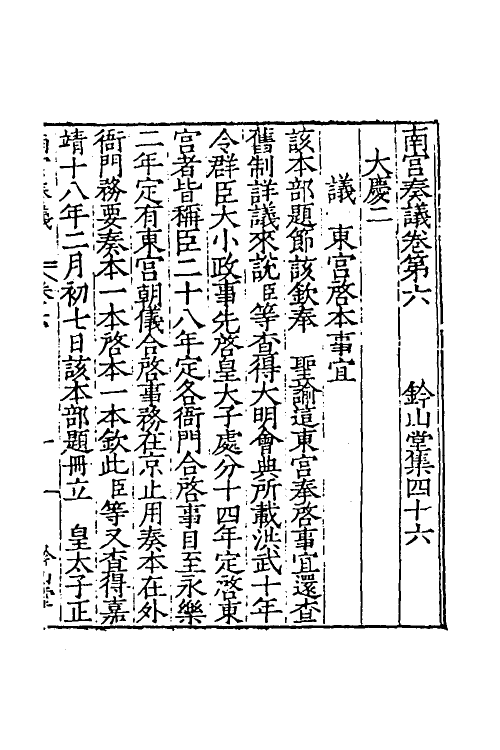 南宫奏議卷第六 鈐山堂集四十六
大慶二
議 東宫啓本事宜
該本部題節該欽奉 聖諭這東宫奏啓事宜還查
舊制詳議來說臣等查得大明會典所載洪武十年
令群臣大小政事先啓皇太子處分十四年定啓東
宫者皆稱臣二十八年定各衙門合啓事目至永樂
二年定有東宫朝儀合啓事務在京止用奏本在外
衙門務要奏本一本啓本一本欽此臣等又查得嘉
靖十八年二月初七日該本部題冊立 皇太子正